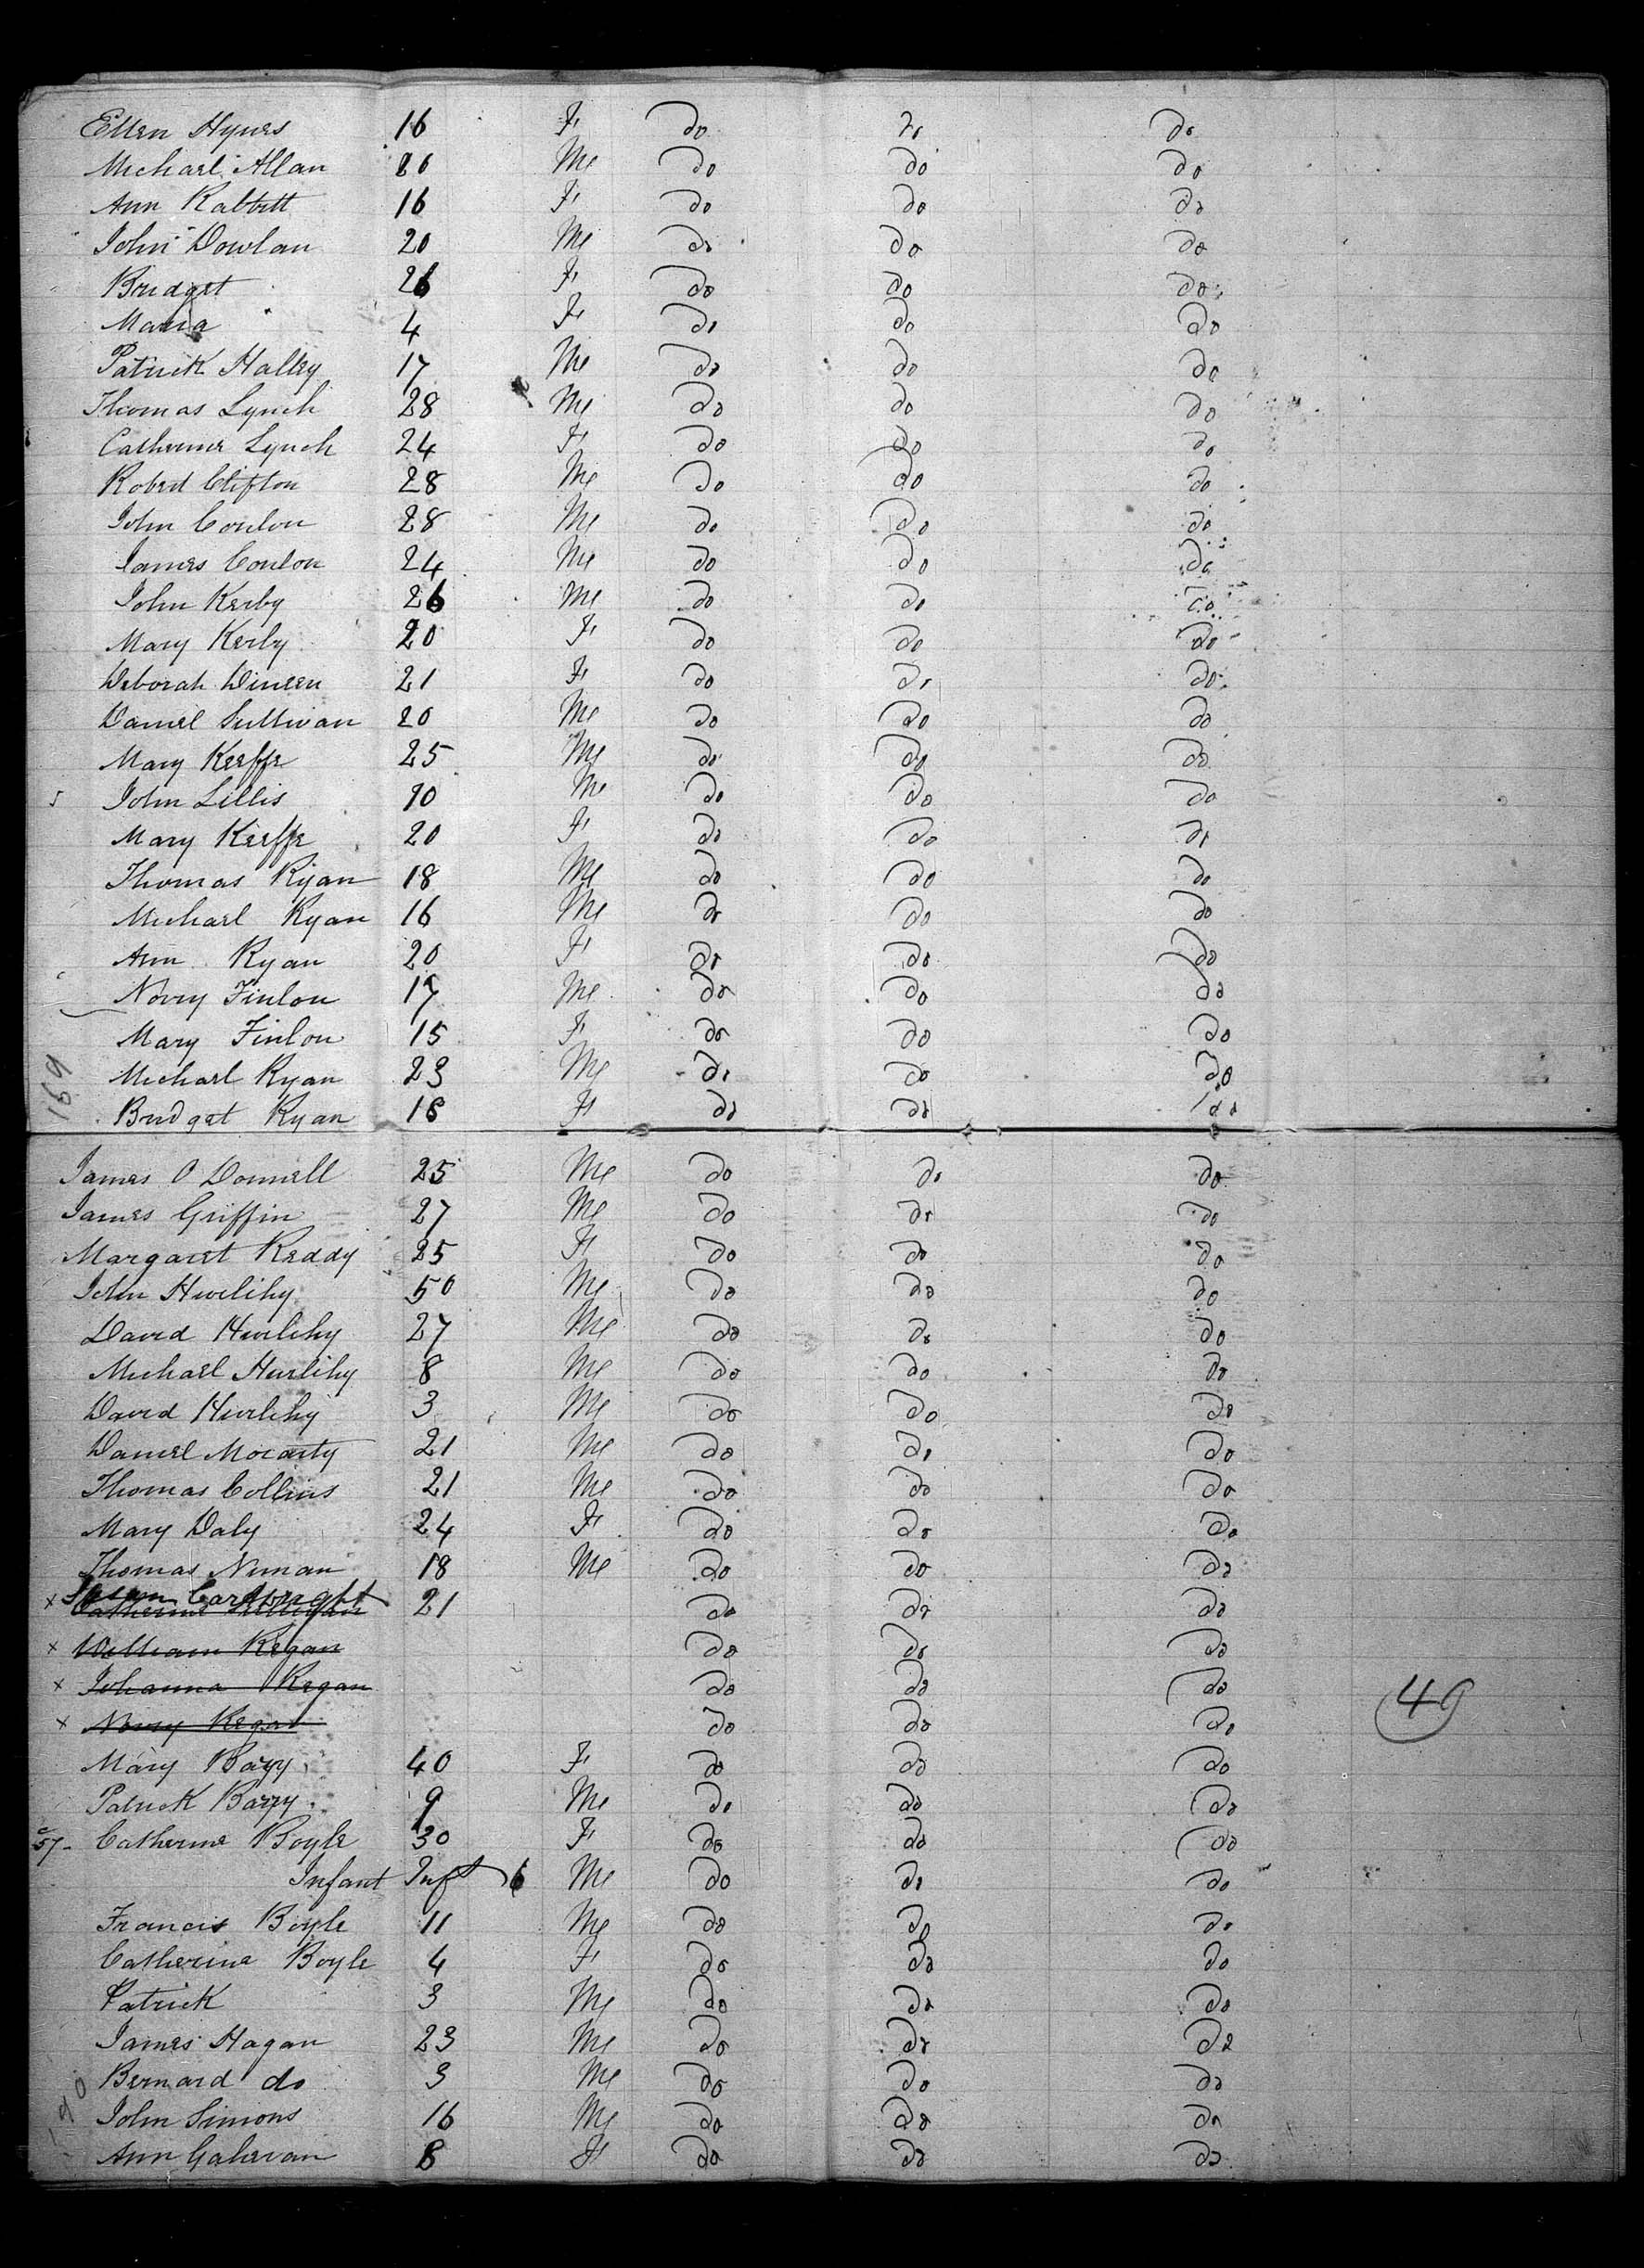 Ellen Hynes 16 F. do do do
Michael Allan 20 Me do do do
Ann Rabbitt 16 F. do do do
John Dowlan 20 Me do do do
Bridget 26 F. do do do
Maria 4 F. do do do
Patrick Halley 17 Me do do do
Thomas Lynch 28 Me do do do
Catherine Lynch 24 F. do do do
Robert Clifton 28 Me do do do
John Conlon 28 Me do do do
James Conlon 24 Me do do do
John Kerby 26 Me do do do
Mary Kerby 20 F. do do do
Deborah Dineen 21 F. do do do
Daniel Sullivan 20 Me do do do
Mary Keeffe 25 Me do do do
John Lillis 10 Me do do do
Mary Keeffe 20 F. do do do
Thomas Ryan 18 Me do do do
Michael Ryan 16 Me do do do
Ann Ryan 20 F. do do do
Norry Finlon 17 Me do do do
Mary Finlon 15 F. do do do
169 Michael Ryan 23 Me do do do
Bridget Ryan 18 F. do do do
James O Donnell 25 Me do do do
James Griffin 27 Me do do do
Margaret Reddy 25 F. do do do
John Hurlihy 50 Me do do do
David Hurlihy 27 Me do do do
Michael Hurlihy 8 Me do do do
David Hurlihy 3 Me do do do
Daniel Mocarty 21 Me do do do
Thomas Collins 21 Me do do do
Mary Daly 24 F. do do do
Thomas Nunan 18 Me do do do
Cartwright
x Catherine 21 do do do
x William Regan do do do
x Johanna Regan do do do 49
x Norry Regan do do do
Mary Barry 40 F. do do do
Patrick Barry 9 Me do do do
57- Catherine Boyle 30 F. do do do
Infant Inft 6 Me do do do
Francis Boyle 11 Me do do do
Catherine Boyle 4 F. do do do
Patrick 3 Me do do do
James Hagan 23 Me do do do
Bernard do 3 Me do do do
John Simons 16 Me do do do
Ann Galavan 8 F. do do do